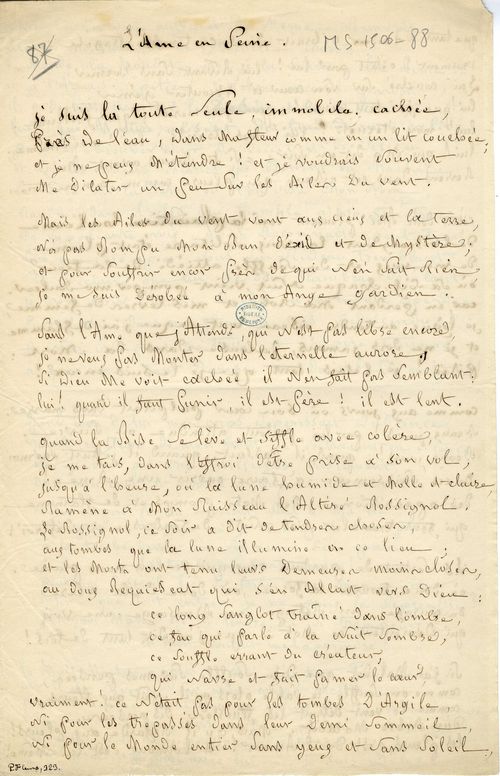 87
L'Ame en Peine.
MS-1506-88
je suis là toute seule, immobile, cachée,
Près de l'eau, dans ma fleur comme en un lit couchée;
et je ne peux m'éteindre! et je voudrais souvent
me dilater un peu sur les ailes du vent.
Mais les ailes du vent vont aux cieux et la terre,
N'a pas rompu mon ban d'exil et de mystère;
et pour souffrir encor près de qui n'en sait rien
je me suis dérobée à mon Ange gardien.
Sans l'Ame que j'attends, qui n'est pas libre encore,
je ne veux pas monter dans l'éternelle aurore,
Si Dieu me voit cachée il n'en fait pas semblant:
lui! quand il faut punir, il est père! il est lent.
quand la Bise se lève et siffle avec colère,
je me tais, dans l'effroi d'être prise à son vol,
jusqu'à l'heure, où la lune humide et molle et claire,
Ramène à mon Ruisseau l'altéré Rossignol.
Le Rossignol, ce soir a dit de tendres choses,
aux tombes que la lune illumine en ce lieu;
et les Morts ont tenu leurs demeures moins closes,
au doux Requiescat qui s'en allait vers Dieu:
ce long sanglot traîné dans l'ombre,
ce feu qui parle à la Nuit sombre,
ce souffle errant du créateur,
qui navre et fait pamer le cœur
vraiment! ce n'était pas pour les tombes d'Argile
Ni pour les trépassés dans leur demi sommeil
Ni pour le Monde entier sans yeux et sans Soleil,